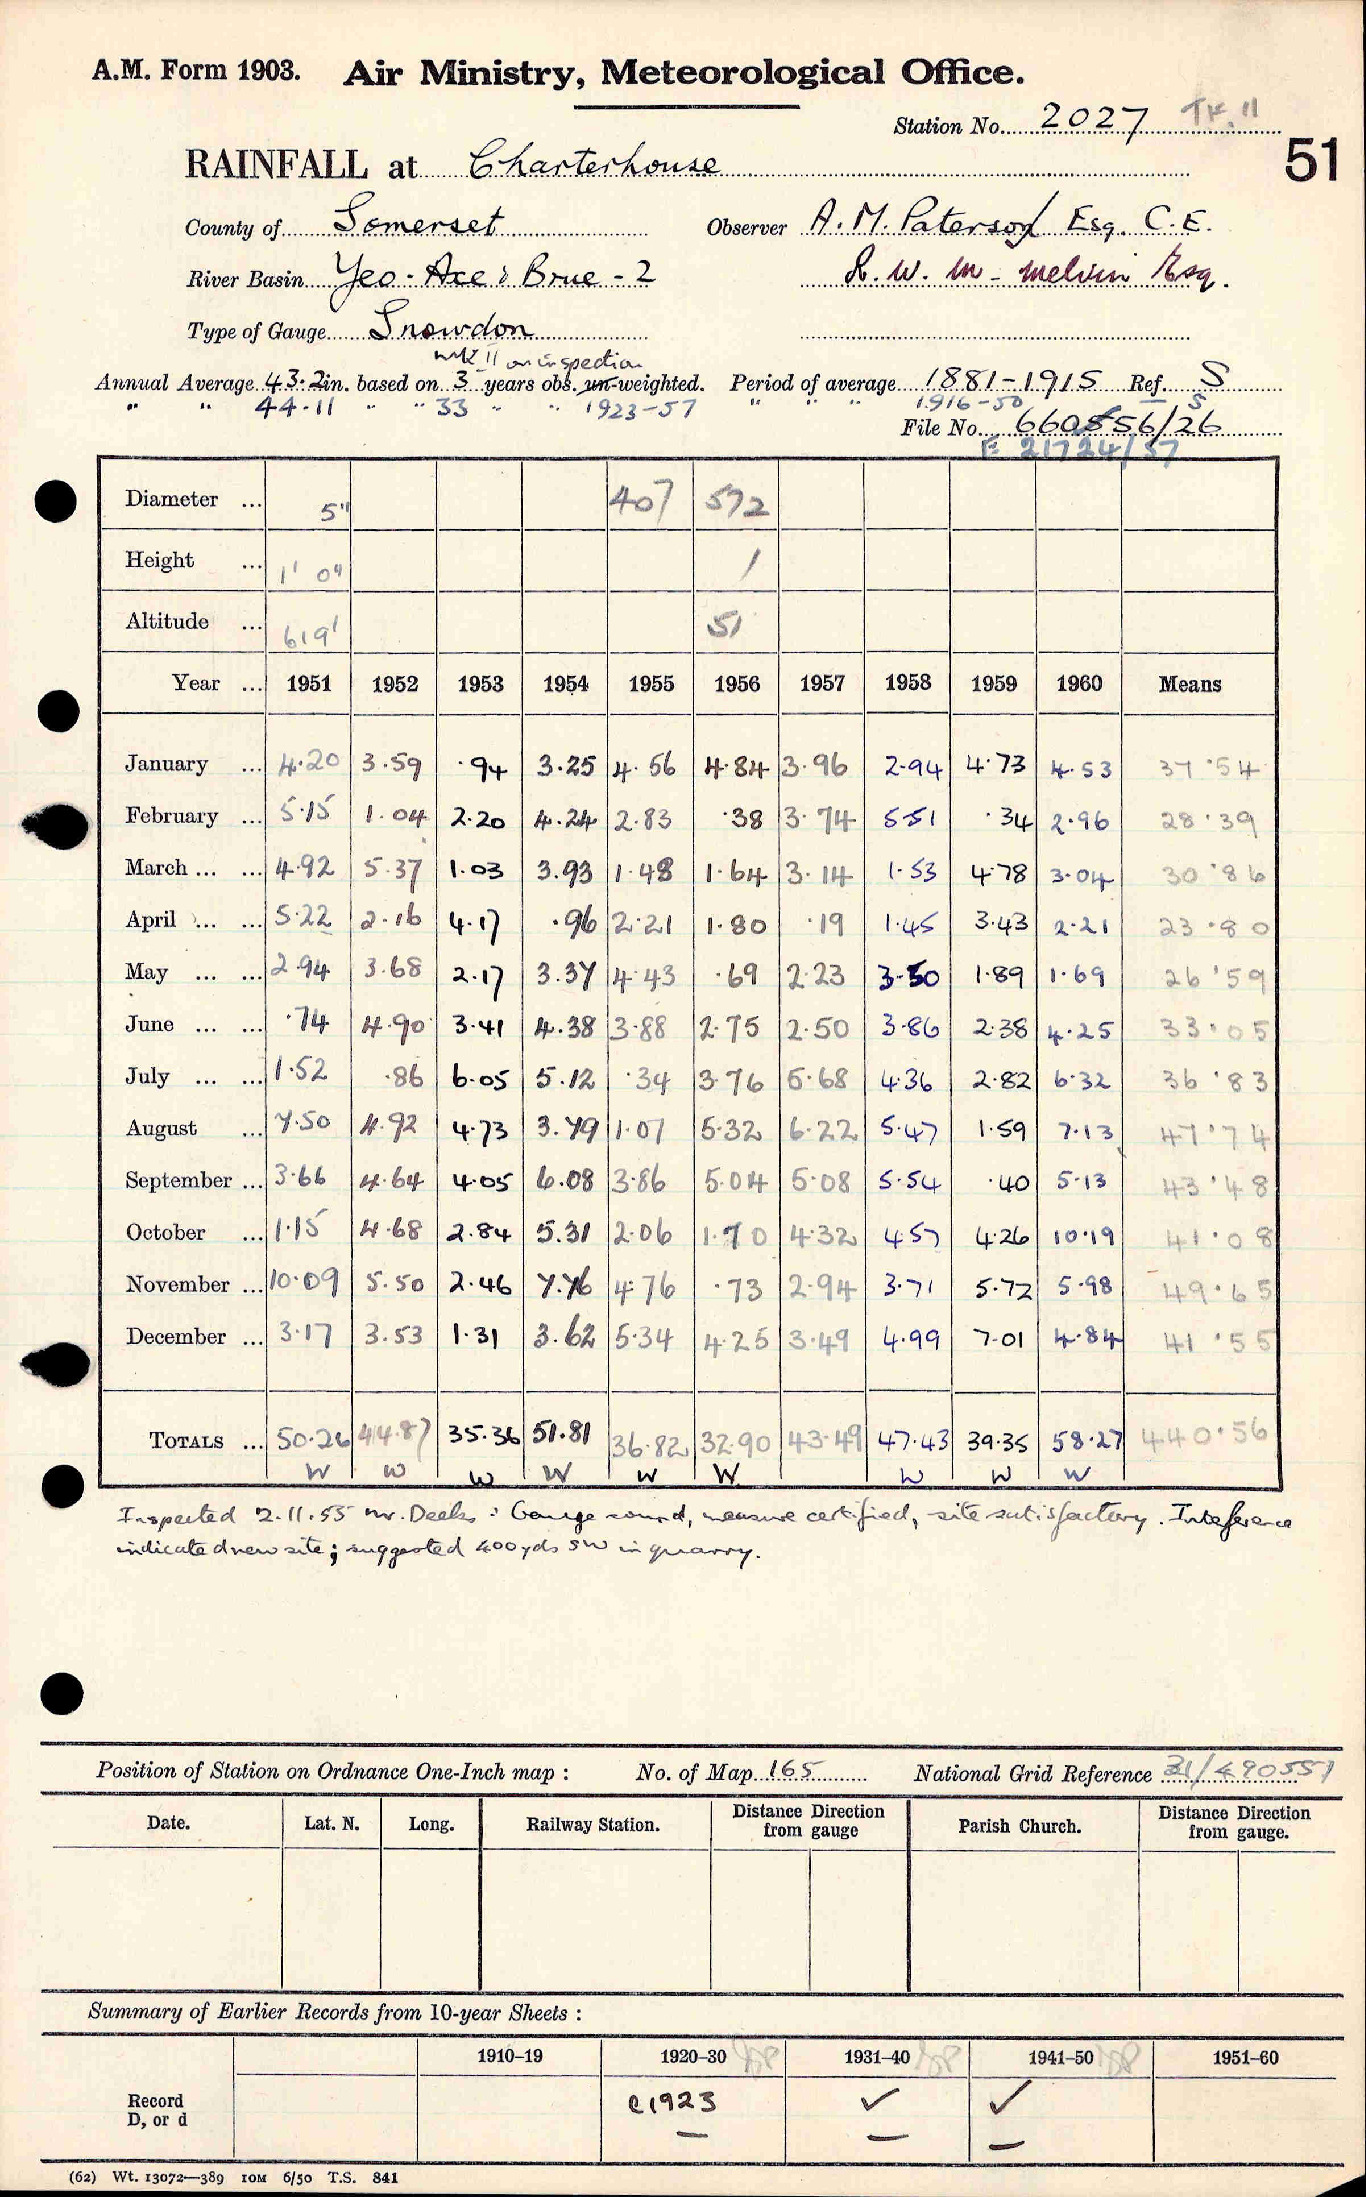 A.M. Form 1903. Air Ministry, Meteorological Office.
Station No. 2027
51
RAINFALL at Charterhouse
County of Somerset Observer A. M. Paterson Esq. C.E.
River Basin Yeo. Axe & Brue - 2 R. W. M - Melvin Esq.
Type of Gauge Snowdon
MK II on inspection
Annual Average 43.2 in. based on 3 years obs. un-weighted. Period of average 1881-1915 Ref. S
" " 44.11 " " 33 " " 1923-57 " " " 1916-50 S
File No. 660556/26
E 21724/57
Diameter ... 5" 407 572
Height ... 1' 0" 1
Altitude ... 619' 51
Year ... 1951 1952 1953 1954 1955 1956 1957 1958 1959 1960 Means
January ... 4.20 3.59 .94 3.25 4.56 4.84 3.96 2.94 4.73 4.53 37.54
February ... 5.15 1.04 2.20 4.24 2.83 .38 3.74 5.51 .34 2.96 28.39
March ... ... 4.92 5.37 1.03 3.93 1.48 1.64 3.14 1.53 4.78 3.04 30.86
April ... ... 5.22 2.16 4.17 .96 2.21 1.80 .19 1.45 3.43 2.21 23.80
May ... ... 2.94 3.68 2.17 3.37 4.43 .69 2.23 3.50 1.89 1.69 26.59
June ... ... .74 4.90 3.41 4.38 3.88 2.75 2.50 3.86 2.38 4.25 33.05
July ... ... 1.52 .86 6.05 5.12 .34 3.76 5.68 4.36 2.82 6.32 36.83
August ... 7.50 4.92 4.73 3.79 1.07 5.32 6.22 5.47 1.59 7.13 47.74
September ... 3.66 4.64 4.05 6.08 3.86 5.04 5.08 5.54 .40 5.13 43.48
October ... 1.15 4.68 2.84 5.31 2.06 1.70 4.32 4.57 4.26 10.19 41.08
November ... 10.09 5.50 2.46 7.76 4.76 .73 2.94 3.71 5.72 5.98 49.65
December ... 3.17 3.53 1.31 3.62 5.34 4.25 3.49 4.99 7.01 4.84 41.55
TOTALS ... 50.26 44.87 35.36 51.81 36.82 32.90 43.49 47.43 39.35 58.27 440.56
W W W W W W W W W
Inspected 2.11.55 Mr. Deeks: Gauge sound, measure certified, site satisfactory. Inteference
indicated new site; suggested 400 yds SW in quarry.
Position of Station on Ordnance One-Inch map : No. of Map 165 National Grid Reference 31/490551
Date. Lat. N. Long. Railway Station. Distance Direction from gauge Parish Church. Distance Direction from gauge.
Summary of Earlier Records from 10-year Sheets :
1910-19 1920-30 1931-40 1941-50 1951-60
Record
D, or d
c1923 ✓ ✓
(62) Wt. 13072—389 10M 6/50 T.S. 841